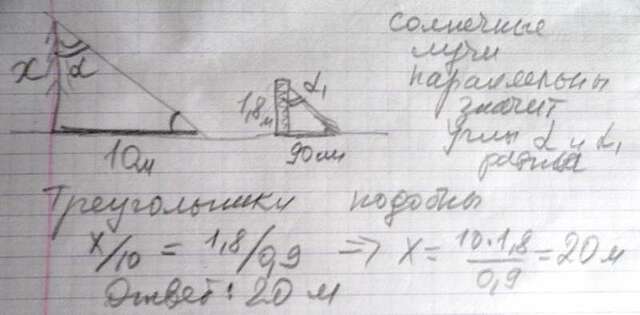 x α
10м
1,8м
α₁
90см
солнечные
лучи
параллельны
значит
углы α и α₁
равны
Треугольники подобны
x/10 = 1,8/0,9 => x = 10·1,8/0,9 = 20 м
Ответ: 20 м